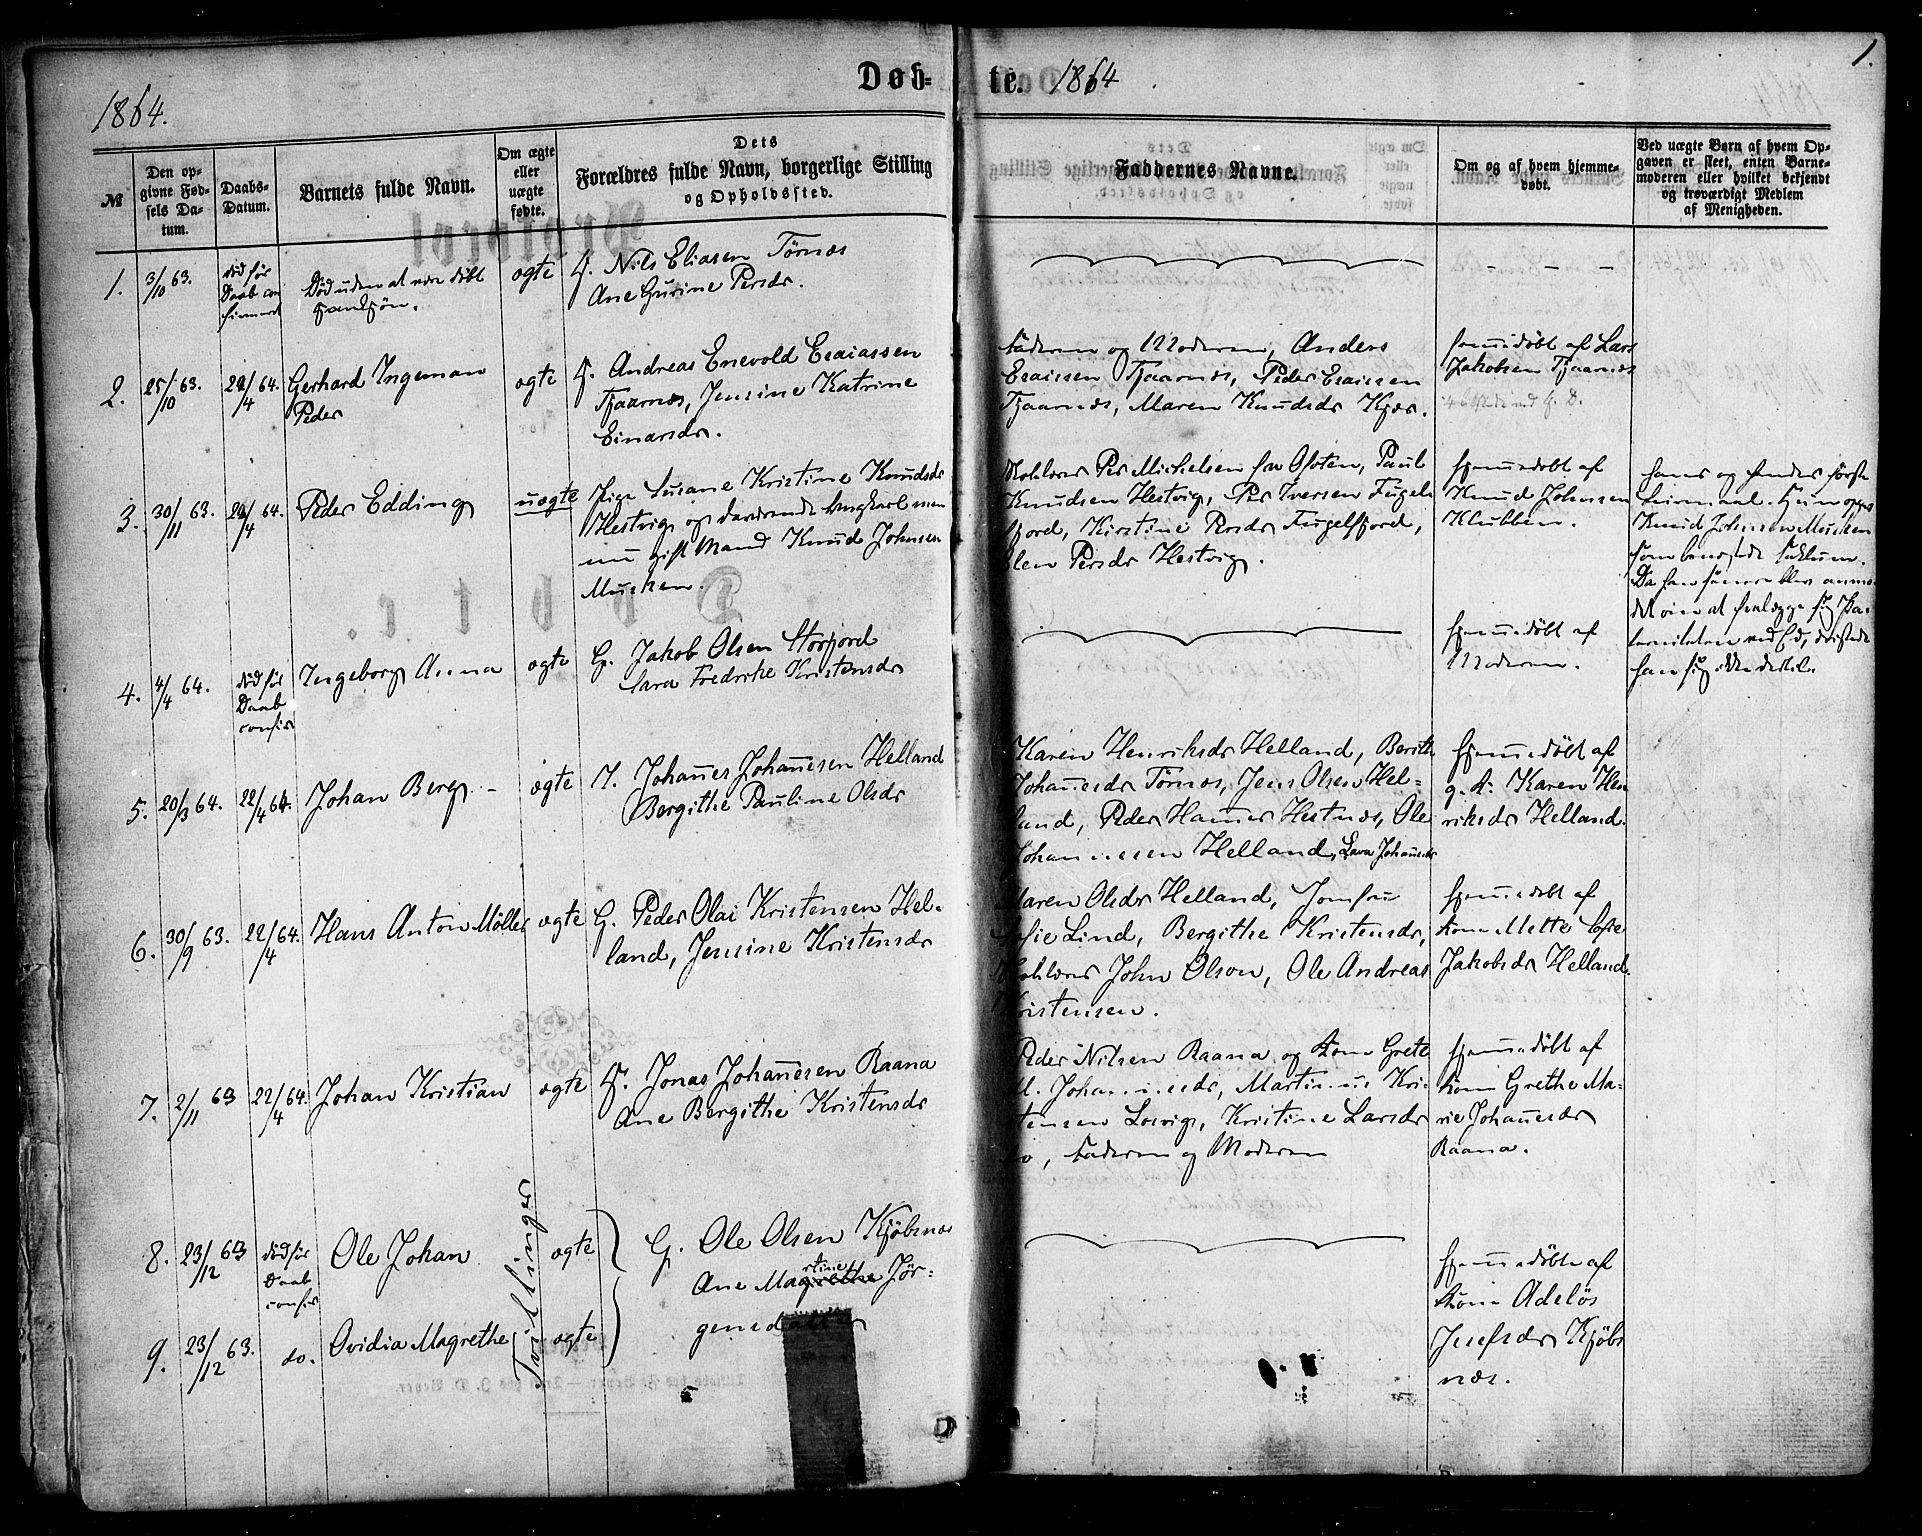 1864.
Døb=
te. 1864
1.
№
Den op-
givne Fød-
sels Da-
tum.
Daabs-
Datum.
Barnets fulde Navn.
Om ægte
eller
uægte
fødte.
Dets
Forældres fulde Navn, borgerlige Stilling
og Opholdssted.
Faddernes Navne.
Om og af hvem hjemme-
døbt.
Ved uægte Børn af hvem Op-
gaven er skeet, enten Barne-
moderen eller hvilket bekjendt
og troværdigt Medlem
af Menigheden.
1. 3/10 63.
død før
Daab con
firmert
Død uden at være døbt
ægte
G. Nils Eliasen Törnæs
Ane Gurine Persdr.
- - - -
2. 25/10 63. 24/4 64.
Gerhard Ingeman
Peder
ægte
G. Andreas Enevold Esaiassen
Tjaarnæs, Jensine Katrine
Einarsdr.
Faderen og Moderen, Anders
Esaissen Tjaarnæs, Peder Esaissen
Tjaarnæs, Maren Knudsdr Kjær.
hjemmedøbt af Lars
Jakobsen Tjaarnæs
3. 30/11 63. 24/4 64.
Peder Edding
uægte
Pige Susane Kristine Knudsdr
Hestvig og daværende Ungkarl men
nu gift Mand Knud Johnsen
Musken.
Kohldres Per Michelsen fra Ofoten, Paul
Knudsen Hestvig, Per Iversen Fugel-
fjord, Kirstine Persdr Fugelfjord,
Elen Persdr Hestvig.
hjemmedøbt af
Knud Johnsen
Klubben.
hans og hendes første
Leiermaal. Hun opgav
Knud Johnsen Musken
som benegtede Factum.
Da han senere blev anmo-
det om at fralægge sig Pa-
terniteten ved Ed, dristede
han sig ikke dertil.
4. 4/4 64.
død før
Daab
confir
Ingeborg Anna
ægte
G. Jakob Olsen Storjord
Sara Fredrike Kristensdr
hjemmedøbt af
Moderen.
5. 20/3 64. 22/4 64.
Johan Berg -
ægte
I. Johañes Johañesen Helland
Bergithe Pauline Olsdr
Karen Henriksdr Helland, Berith
Johañesdr Törnæs, Jens Olsen Hel-
land, Peder Hamer Hestnæs, Ole
Johannesen Helland, Lava Johañesdr
hjemmedøbt af
g. K. Karen Hen
riksdr Helland.
6. 30/9 63. 22/4 64.
Hans Anton Möller
ægte
G. Peder Olai Kristensen Hel-
land, Jensine Kristensdr
Maren Olsdr Helland, Jomfru
Sofie Lind, Bergithe Kristensdr,
Kohldres John Olson, Ole Andreas
Kristensen.
hjemmedøbt af
Kone Mette Sofie
Jakobsdr Helland.
7. 2/11 63 22/4 64.
Johan Kristian
ægte
G. Jonas Johañesen Raana
Ane Bergithe Kristensdr
Peder Nilsen Raana og Kone Grete
M. Johannesdr, Martinus Kri-
stensen Losvig, Kristine Larsdr
Faderen og Moderen
hjemmedøbt af
Kone Grethe Ma-
rie Johañesdr
Raana.
Tvillinger
8. 23/12 63
død før
Daab
confir
Ole Johan
ægte
G. Ole Olsen Kjöbsnæs
rtine
Ane Magrethe Jör-
gensdatter
hjemmedøbte af
Kone Adeløs
Josefsdr Kjöbs
næs.
9. 23/12 63. do.
Ovidia Magrethe
ægte